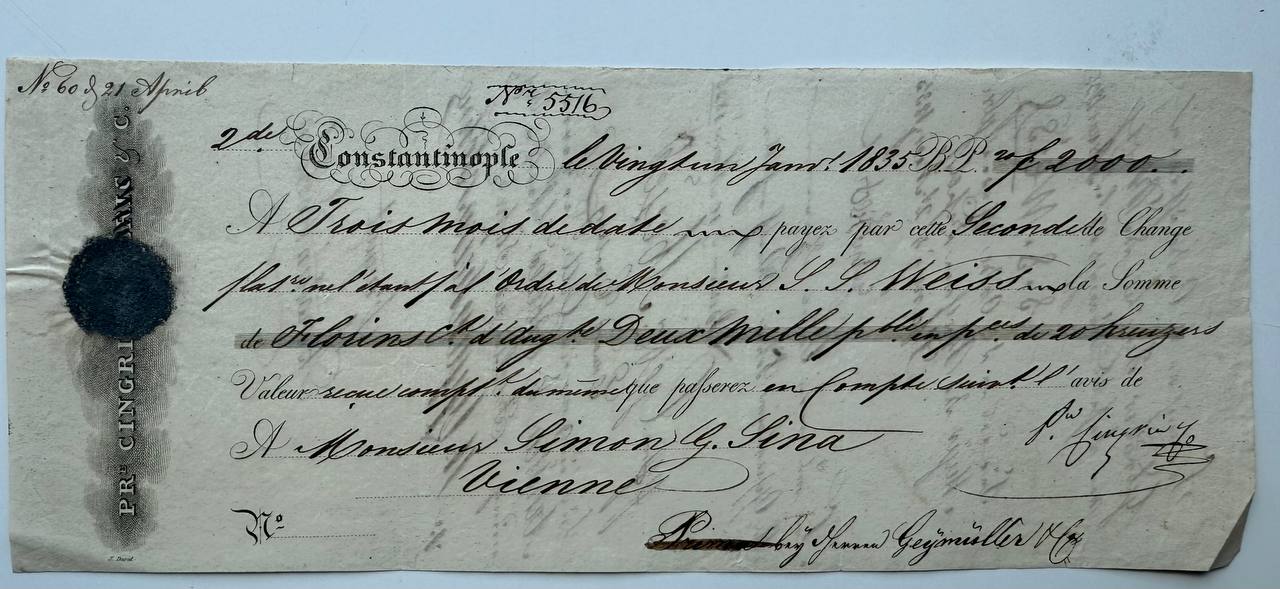 No 60 21 April
Nre 5516
2de Constantinople le Vingt un Janvr. 1835 B.P. f 2000.
A Trois mois de date payez par cette Seconde de Change
à l'Ordre de Monsieur S. S. Weiss la Somme
de Florins Ct. d'Augte Deux Mille en pces. de 20 kreuzers
Valeur reçue compt. du même que passerez en Compte suivt. l'avis de
A Monsieur Simon G. Sina
Vienne
No
bey Herren Geymüller & Co
PRE CINGRI & C.
J. Duval